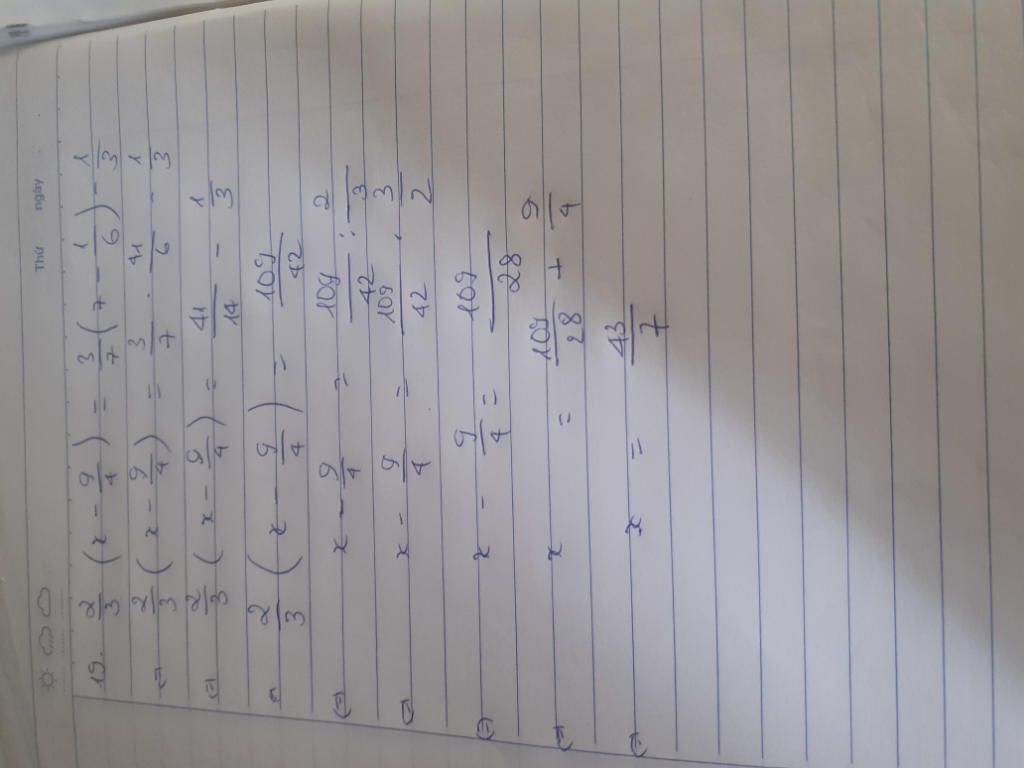 Thứ ngày
19. 2/3 (x - 9/4) = 3/7 (7 - 1/6) - 1/3
⇔ 2/3 (x - 9/4) = 3/7 . 41/6 - 1/3
⇔ 2/3 (x - 9/4) = 41/14 - 1/3
⇔ 2/3 (x - 9/4) = 109/42
⇔ x - 9/4 = 109/42 : 2/3
⇔ x - 9/4 = 109/42 . 3/2
⇔ x - 9/4 = 109/28
⇔ x = 109/28 + 9/4
⇔ x = 43/7